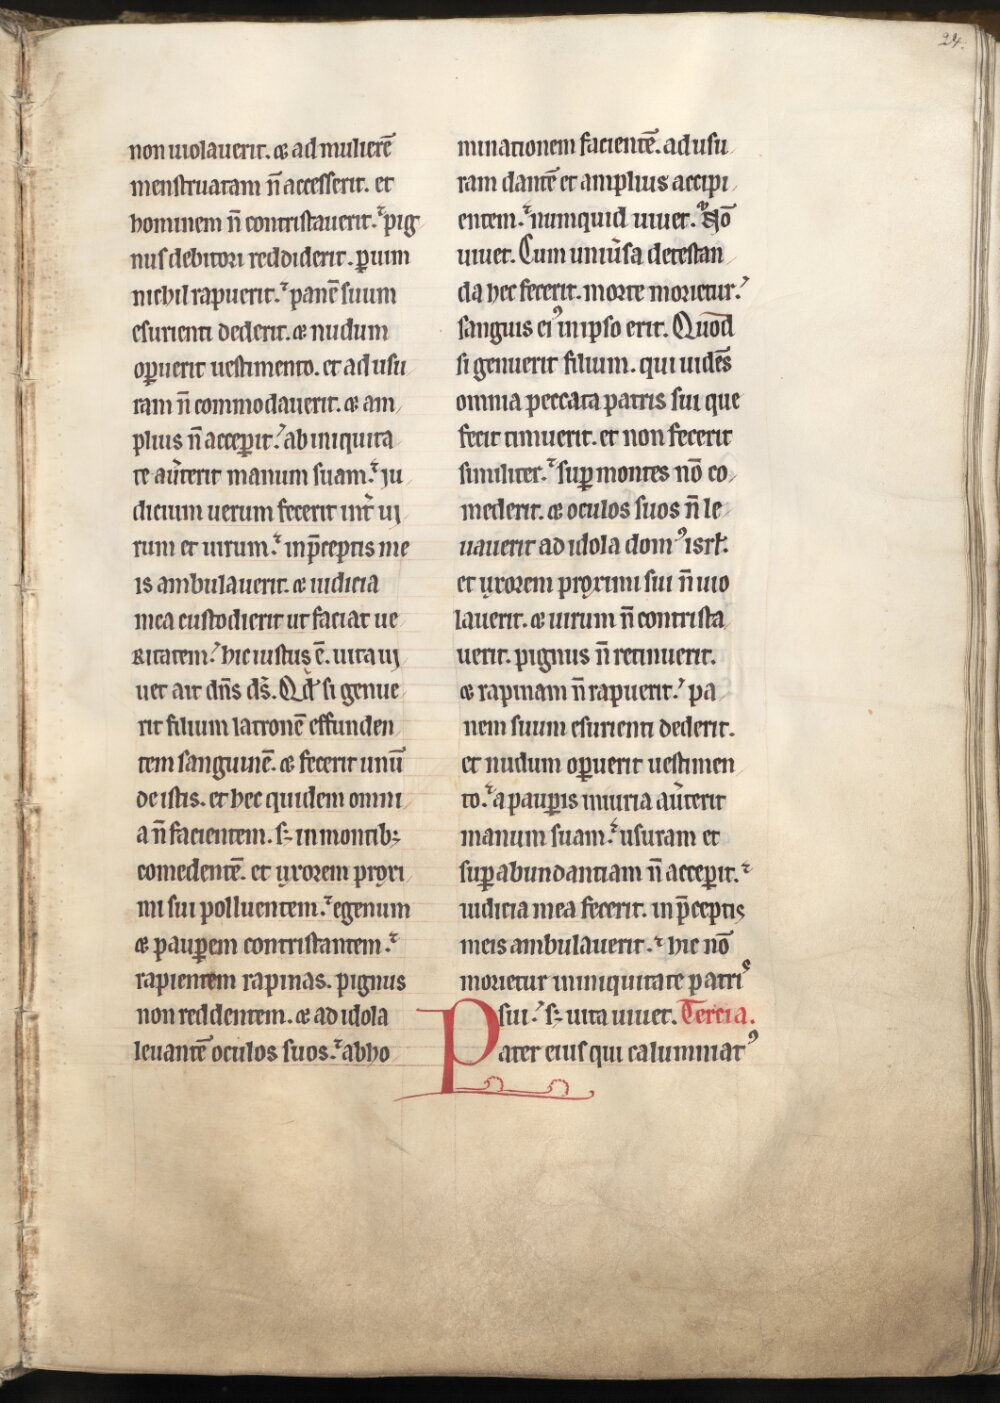 24.
non uiolauerit. & ad mulierē
menstruatam n̄ accesserit. et
hominem n̄ contristauerit. ⁊ pig
nus debitori reddiderit. ꝑ uim
nichil rapuerit. ⁊ panē suum
esurienti dederit. & nudum
oꝑuerit uestimento. et ad usu
ram n̄ commodauerit. & am
plius n̄ acceꝑit. ab iniquita
te au͛terit manum suam. ⁊ ju
dicium uerum fecerit int͛ ui
rum et uirum. ⁊ in p̄ceptis me
is ambulauerit. & iudicia
mea custodierit ut faciat ue
ritatem. hic iustus ē. uita ui
uet ait dn̄s ds̄. Qđ si genue
rit filium latronē effunden
tem sanguinē. & fecerit unū
de istis. et hec quidem omni
a n̄ facientem. sꝫ in montibꝫ
comedentē. et uxorem proxi
mi sui polluentem. ⁊ egenum
& pauꝑem contristantem. ⁊
rapientem rapinas. pignus
non reddentem. & ad idola
leuantē oculos suos. ⁊ abho
minationem facientē. ad usu
ram dantē et amplius accipi
entem. ⁊ numquid uiuet. Nō
uiuet. Cum uniu͛sa detestan
da hec fecerit. morte morietur.
sanguis eiꝰ in ipso erit. Quōd
si genuerit filium. qui uidēs
omnia peccata patris sui que
fecit timuerit. et non fecerit
similiter. ⁊ suꝑ montes nō co
mederit. & oculos suos n̄ le
uauerit ad idola domꝰ isrł.
et uxorem proximi sui n̄ uio
lauerit. & uirum n̄ contrista
uerit. pignus n̄ retinuerit.
& rapinam n̄ rapuerit. pa
nem suum esurienti dederit.
et nudum oꝑuerit uestimen
to. ⁊ a pauꝑis iniuria au͛terit
manum suam. ⁊ usuram et
suꝑabundantiam n̄ acceꝑit. ⁊
iudicia mea fecerit. in p̄ceptis
meis ambulauerit. ⁊ hic nō
morietur in iniquitate patris
sui. sꝫ uita uiuet. Tercia.
Pater eius qui calumniatꝰ